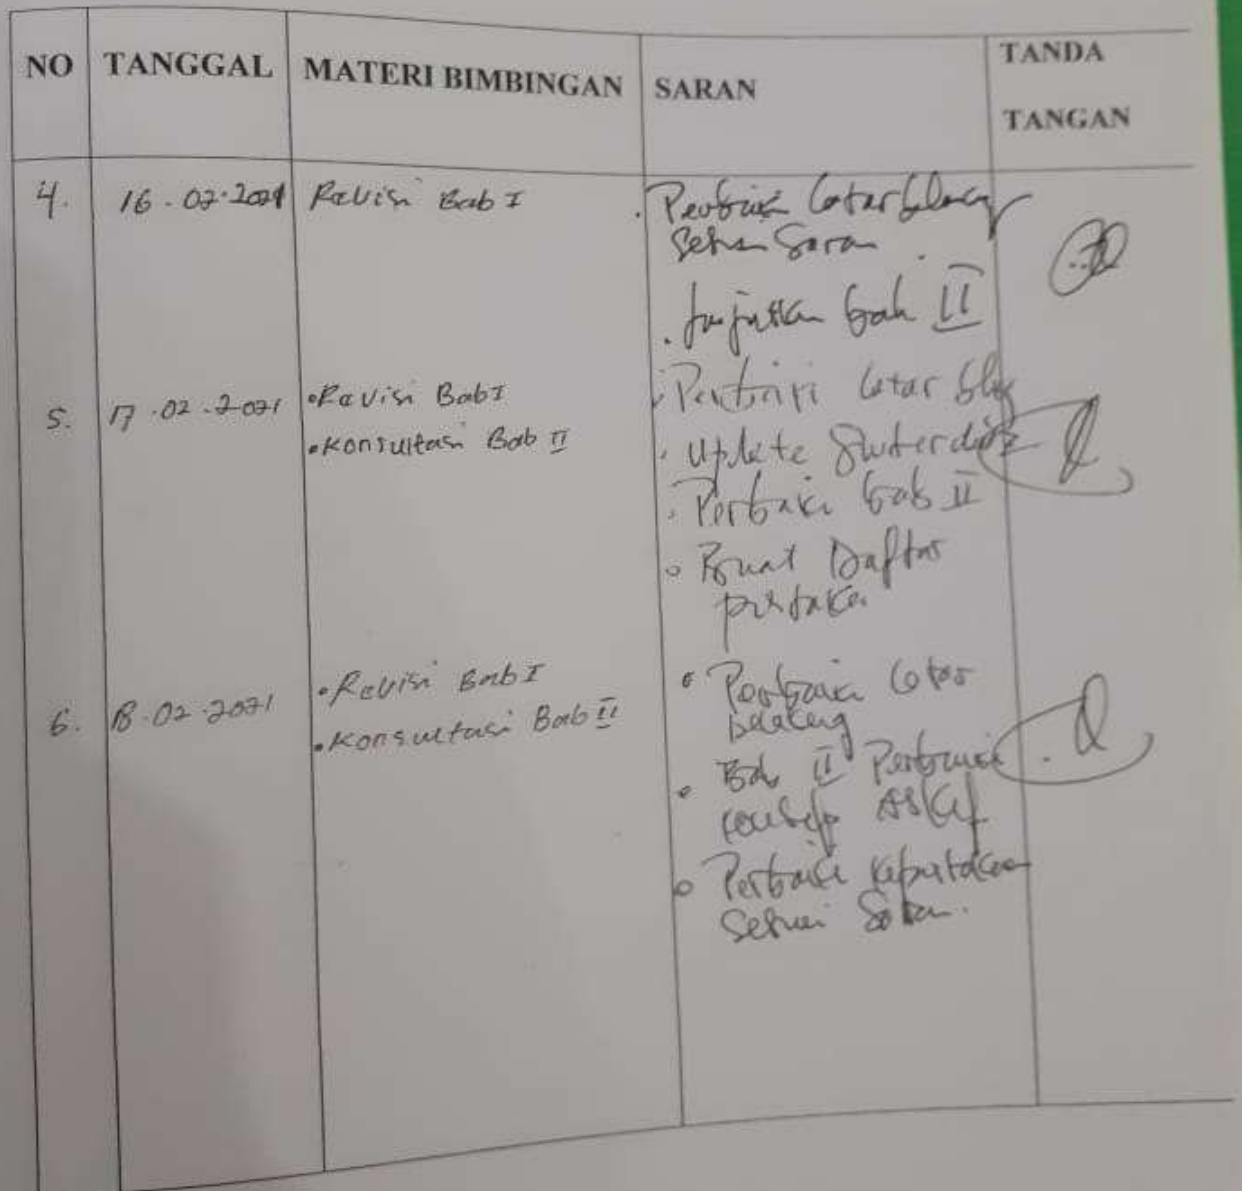 NO TANGGAL MATERI BIMBINGAN SARAN TANDA TANGAN
4. 16-02-2021 Revisi Bab I
Saran
Bab II
5. 17-02-2021 • Revisi Bab I
• Konsultasi Bab II
Latar
• Update
• Perbaiki Bab II
• Buat Daftar
pustaka
6. 18-02-2021 • Revisi Bab I
• Konsultasi Bab II
• Perbaiki Latar
belakang
• Bab II Perbaiki
konsep Askep
• Perbaiki
Sesuai Saran.